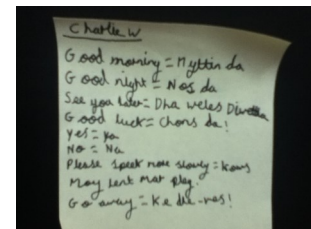 Charlie W
Good morning = Myttin da
Good night = Nos da
See you later = Dha weles
Good luck = Chons da!
Yes = Ya
No = Na
Please speak more slowly = Kows
Moy lent mar pleg.
Go away = Ke dhe-ves!